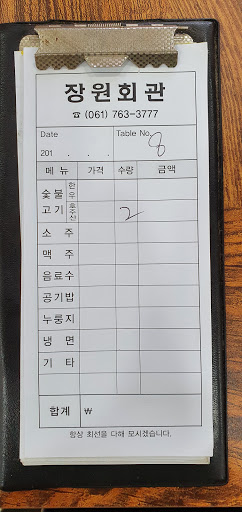 장원회관
☎ (061) 763-3777
Date Table No. 8
201 . . .
메 뉴 가격 수량 금액
숯불 한우
고기 호주산 2
소 주
맥 주
음료수
공기밥
누룽지
냉 면
기 타
합계 ₩
항상 최선을 다해 모시겠습니다.